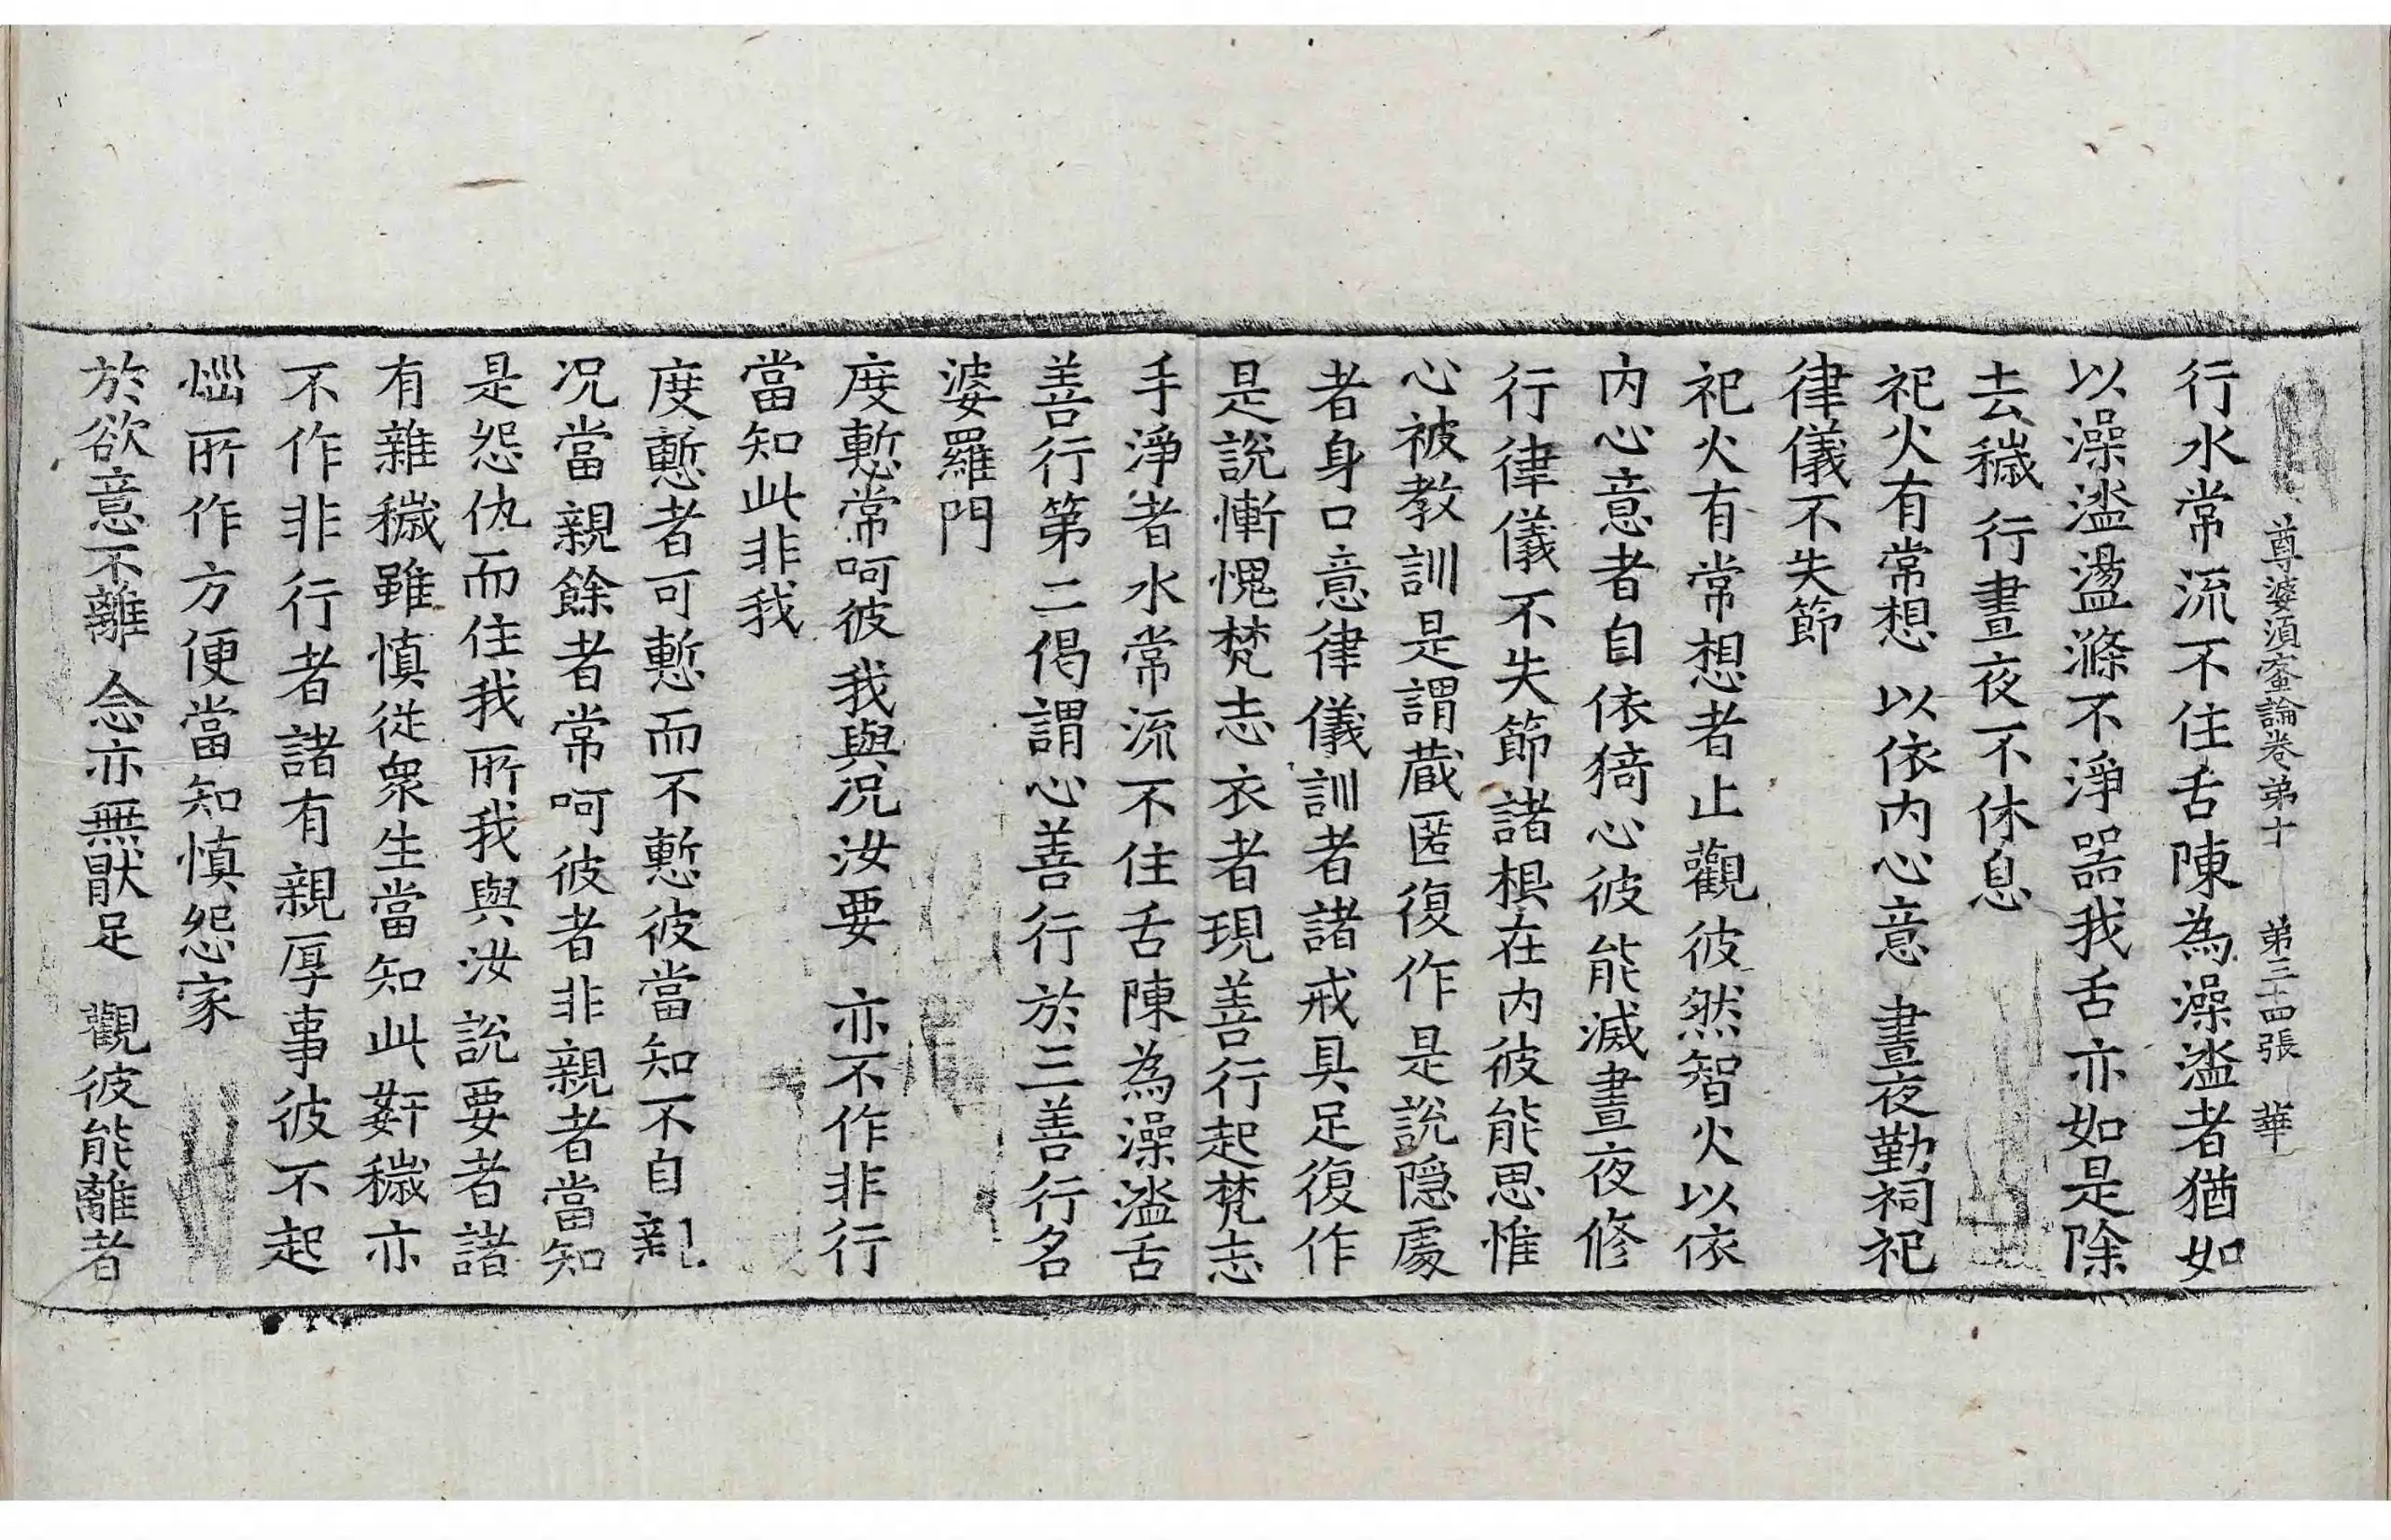 尊婆須蜜論卷第十　第三十四張　華
行水常流不住舌陳為澡盜者猶如
以澡盜盪滌不淨器我舌亦如是除
去穢行晝夜不休息
祀火有常想　以依内心意　晝夜勤祠祀
律儀不失節
祀火有常想者止觀彼然智火以依
内心意者自依猗心彼能滅晝夜修
行律儀不失節諸根在内彼能思惟
心被教訓是謂藏匿復作是說隱處
者身口意律儀訓者諸戒具足復作
是說慚愧梵志衣者現善行起梵志
手淨者水常流不住舌陳為澡盜舌
善行第二偈謂心善行於三善行名
婆羅門
度慙常呵彼　我與况汝要　亦不作非行
當知此非我
度慙者可慙而不慙彼當知不自親
况當親餘者常呵彼者非親者當知
是怨仇而住我所我與汝說要者諸
有雜穢雖慎從衆生當知此姧穢亦
不作非行者諸有親厚事彼不起
惱所作方便當知慎怨家
於欲意不離　念亦無猒足　觀彼能離者